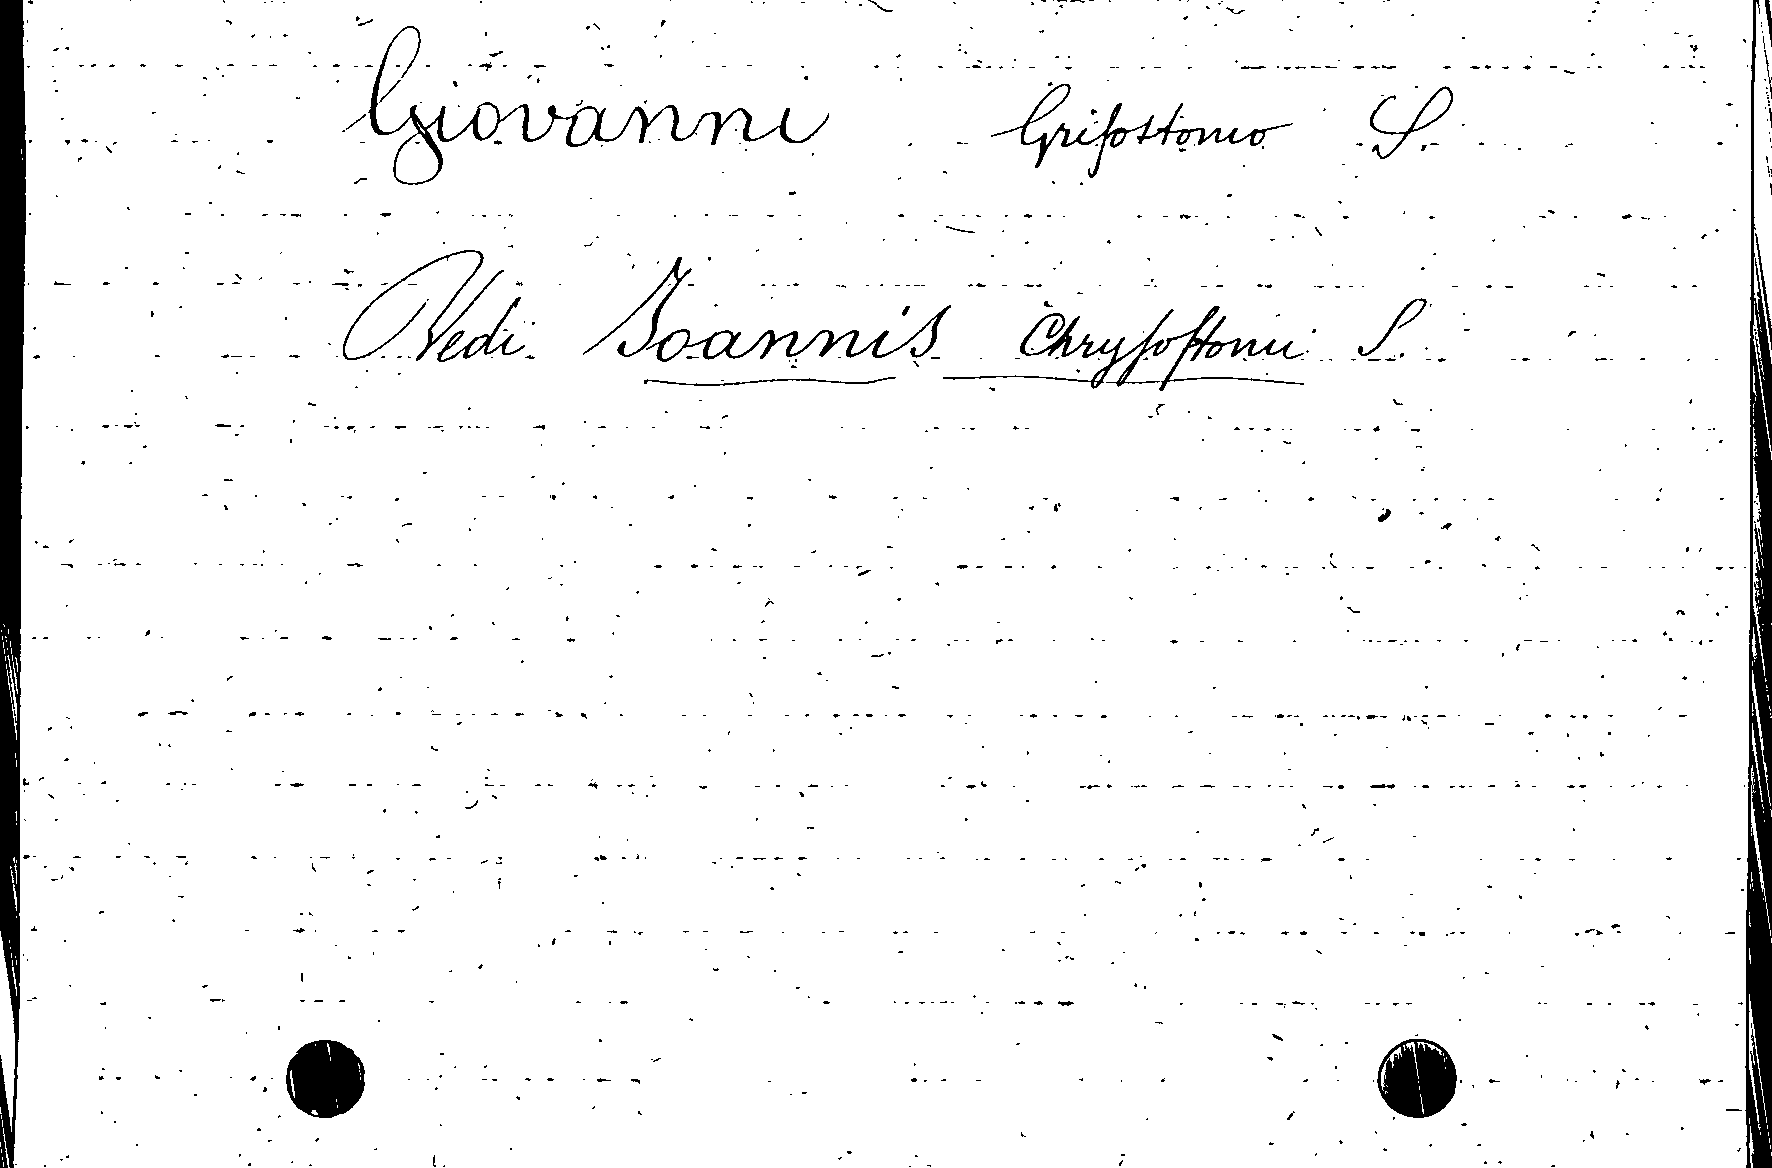 Giovanni Grisostomo S.
Vedi Joannis Chrysostomi S.